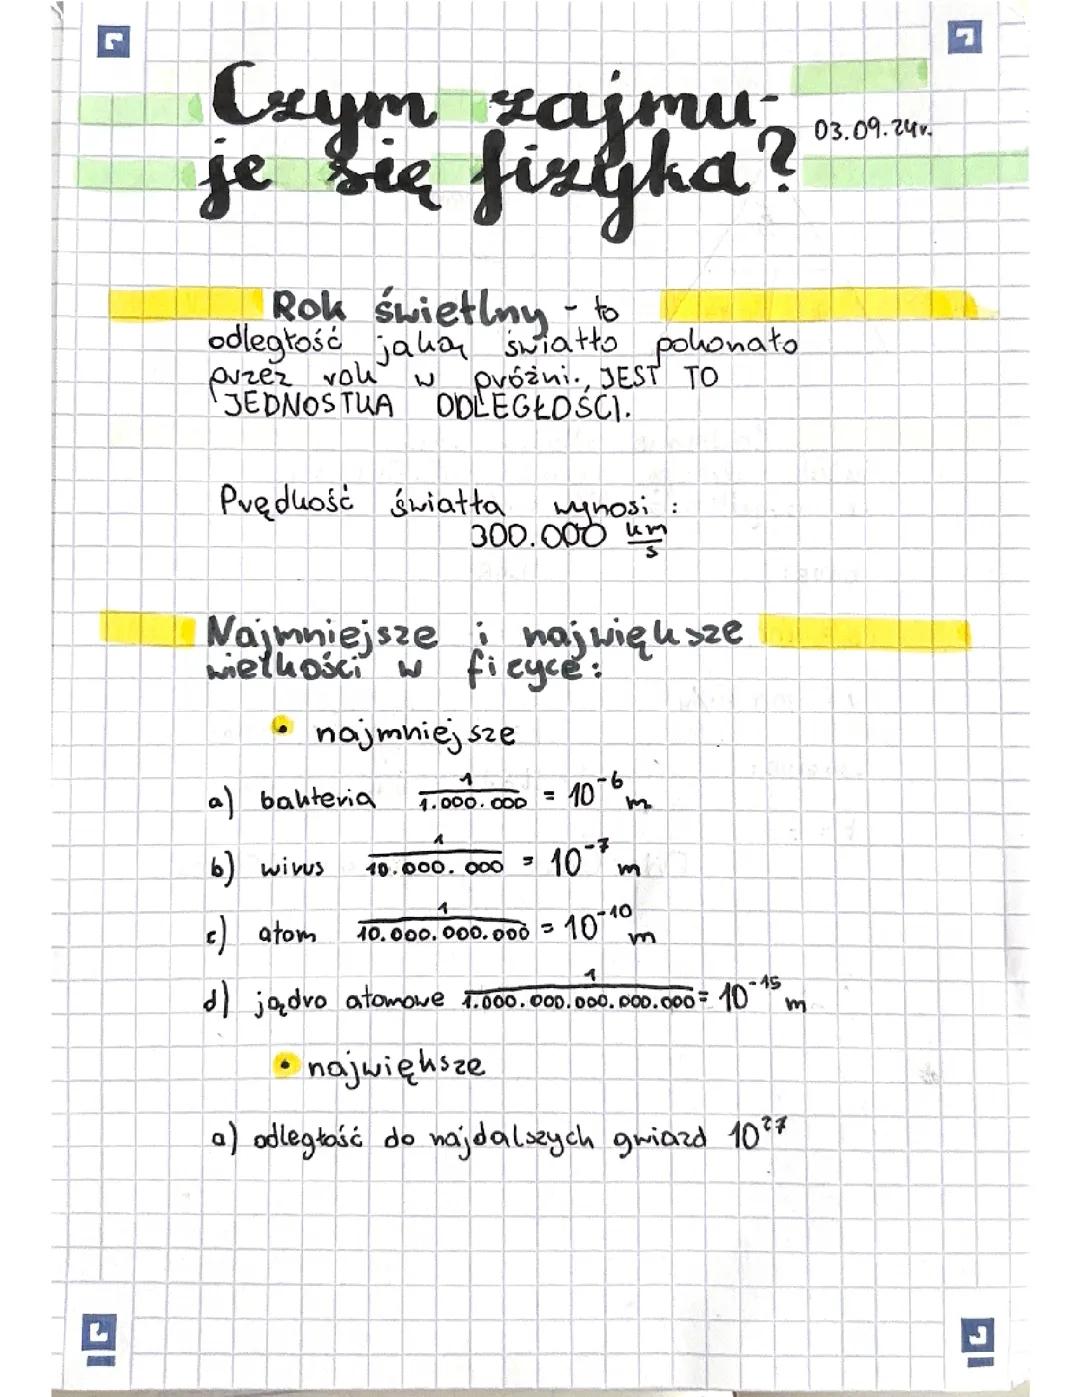 Czym zajmu-
je się fizyka?
03.09.24r.
Rok świetlny - to
odległość jaką światło pokonało
przez rok w próżni., JEST TO
JEDNOSTKA ODLEGŁOŚCI.
Prędkość światła wynosi :
300.000 km/s
Najmniejsze i największe
wielkości w ficyce:
• najmniejsze
a) bakteria 1/1.000.000 = 10⁻⁶ m
b) wirus 1/10.000.000 = 10⁻⁷ m
c) atom 1/10.000.000.000 = 10⁻¹⁰ m
d) jądro atomowe 1/1.000.000.000.000.000 = 10⁻¹⁵ m
• największe
a) odległość do najdalszych gwiazd 10²⁷